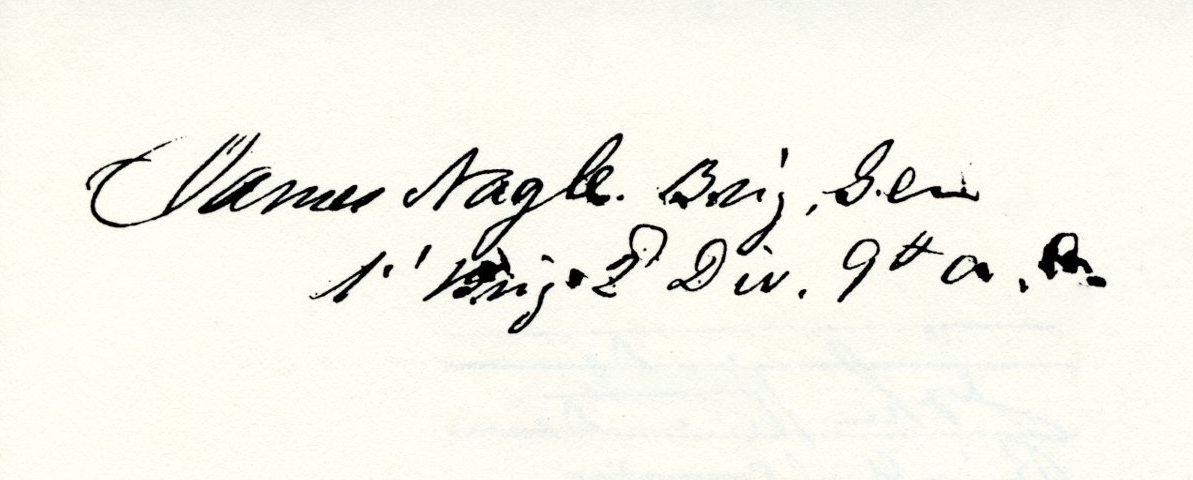 James Nagle. Brig, Gen
1' Brig. 2d Div. 9th a.